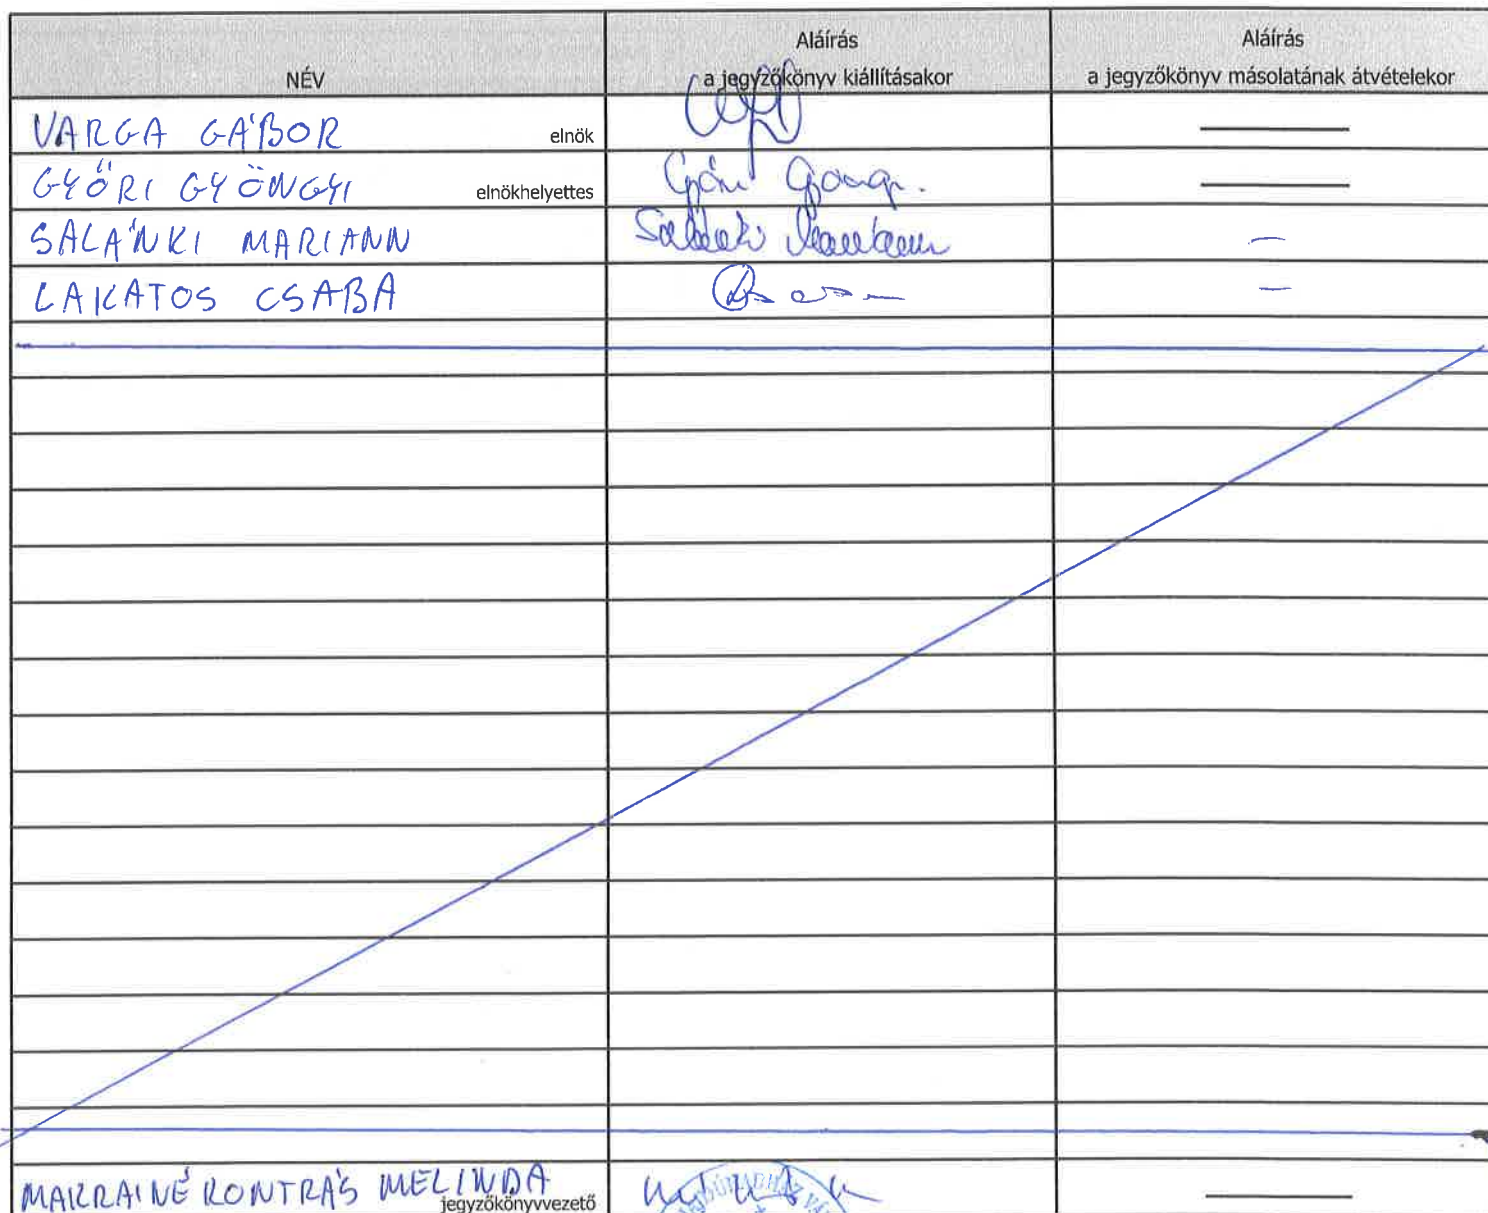 NÉV
Aláírás
a jegyzőkönyv kiállításakor
Aláírás
a jegyzőkönyv másolatának átvételekor
VARGA GÁBOR elnök
GYŐRI GYÖNGYI elnökhelyettes
SALÁNKI MARIANN Salánki Mariann
LAKATOS CSABA
MAKRAINÉ KONTRÁS MELINDA
jegyzőkönyvvezető